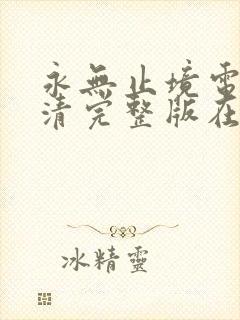 永無止境電
清完整版在
冰精靈